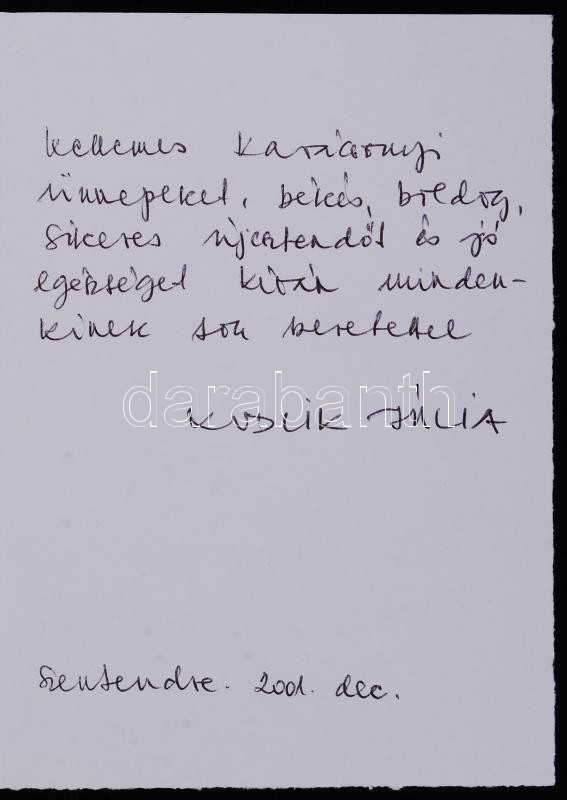 Kellemes Karácsonyi
ünnepeket, békés, boldog,
sikeres újesztendőt és jó
egészséget kíván minden-
kinek sok szeretettel
darabanth
KUBLIK JÚLIA
Szentendre. 2001. dec.